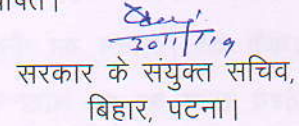 20/11/19
सरकार के संयुक्त सचिव,
बिहार, पटना।